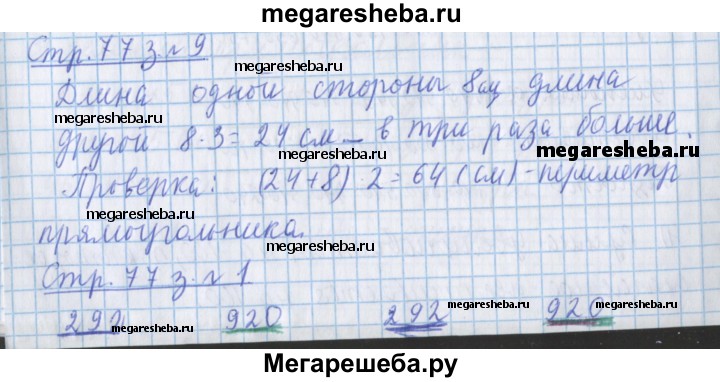 megaresheba.ru
Стр. 77 з. № 9
megaresheba.ru
Длина одной стороны 8 см длина
megaresheba.ru
другой 8·3=24 см – в три раза больше.
megaresheba.ru
Проверка: (24+8) 2=64 (см) - периметр
megaresheba.ru
megaresheba.ru
прямоугольника.
megaresheba.ru
Стр. 77 з. № 1
292 920 292 920
megaresheba.ru megaresheba.ru megaresheba.ru megaresheba.ru
Мегарешеба.ру